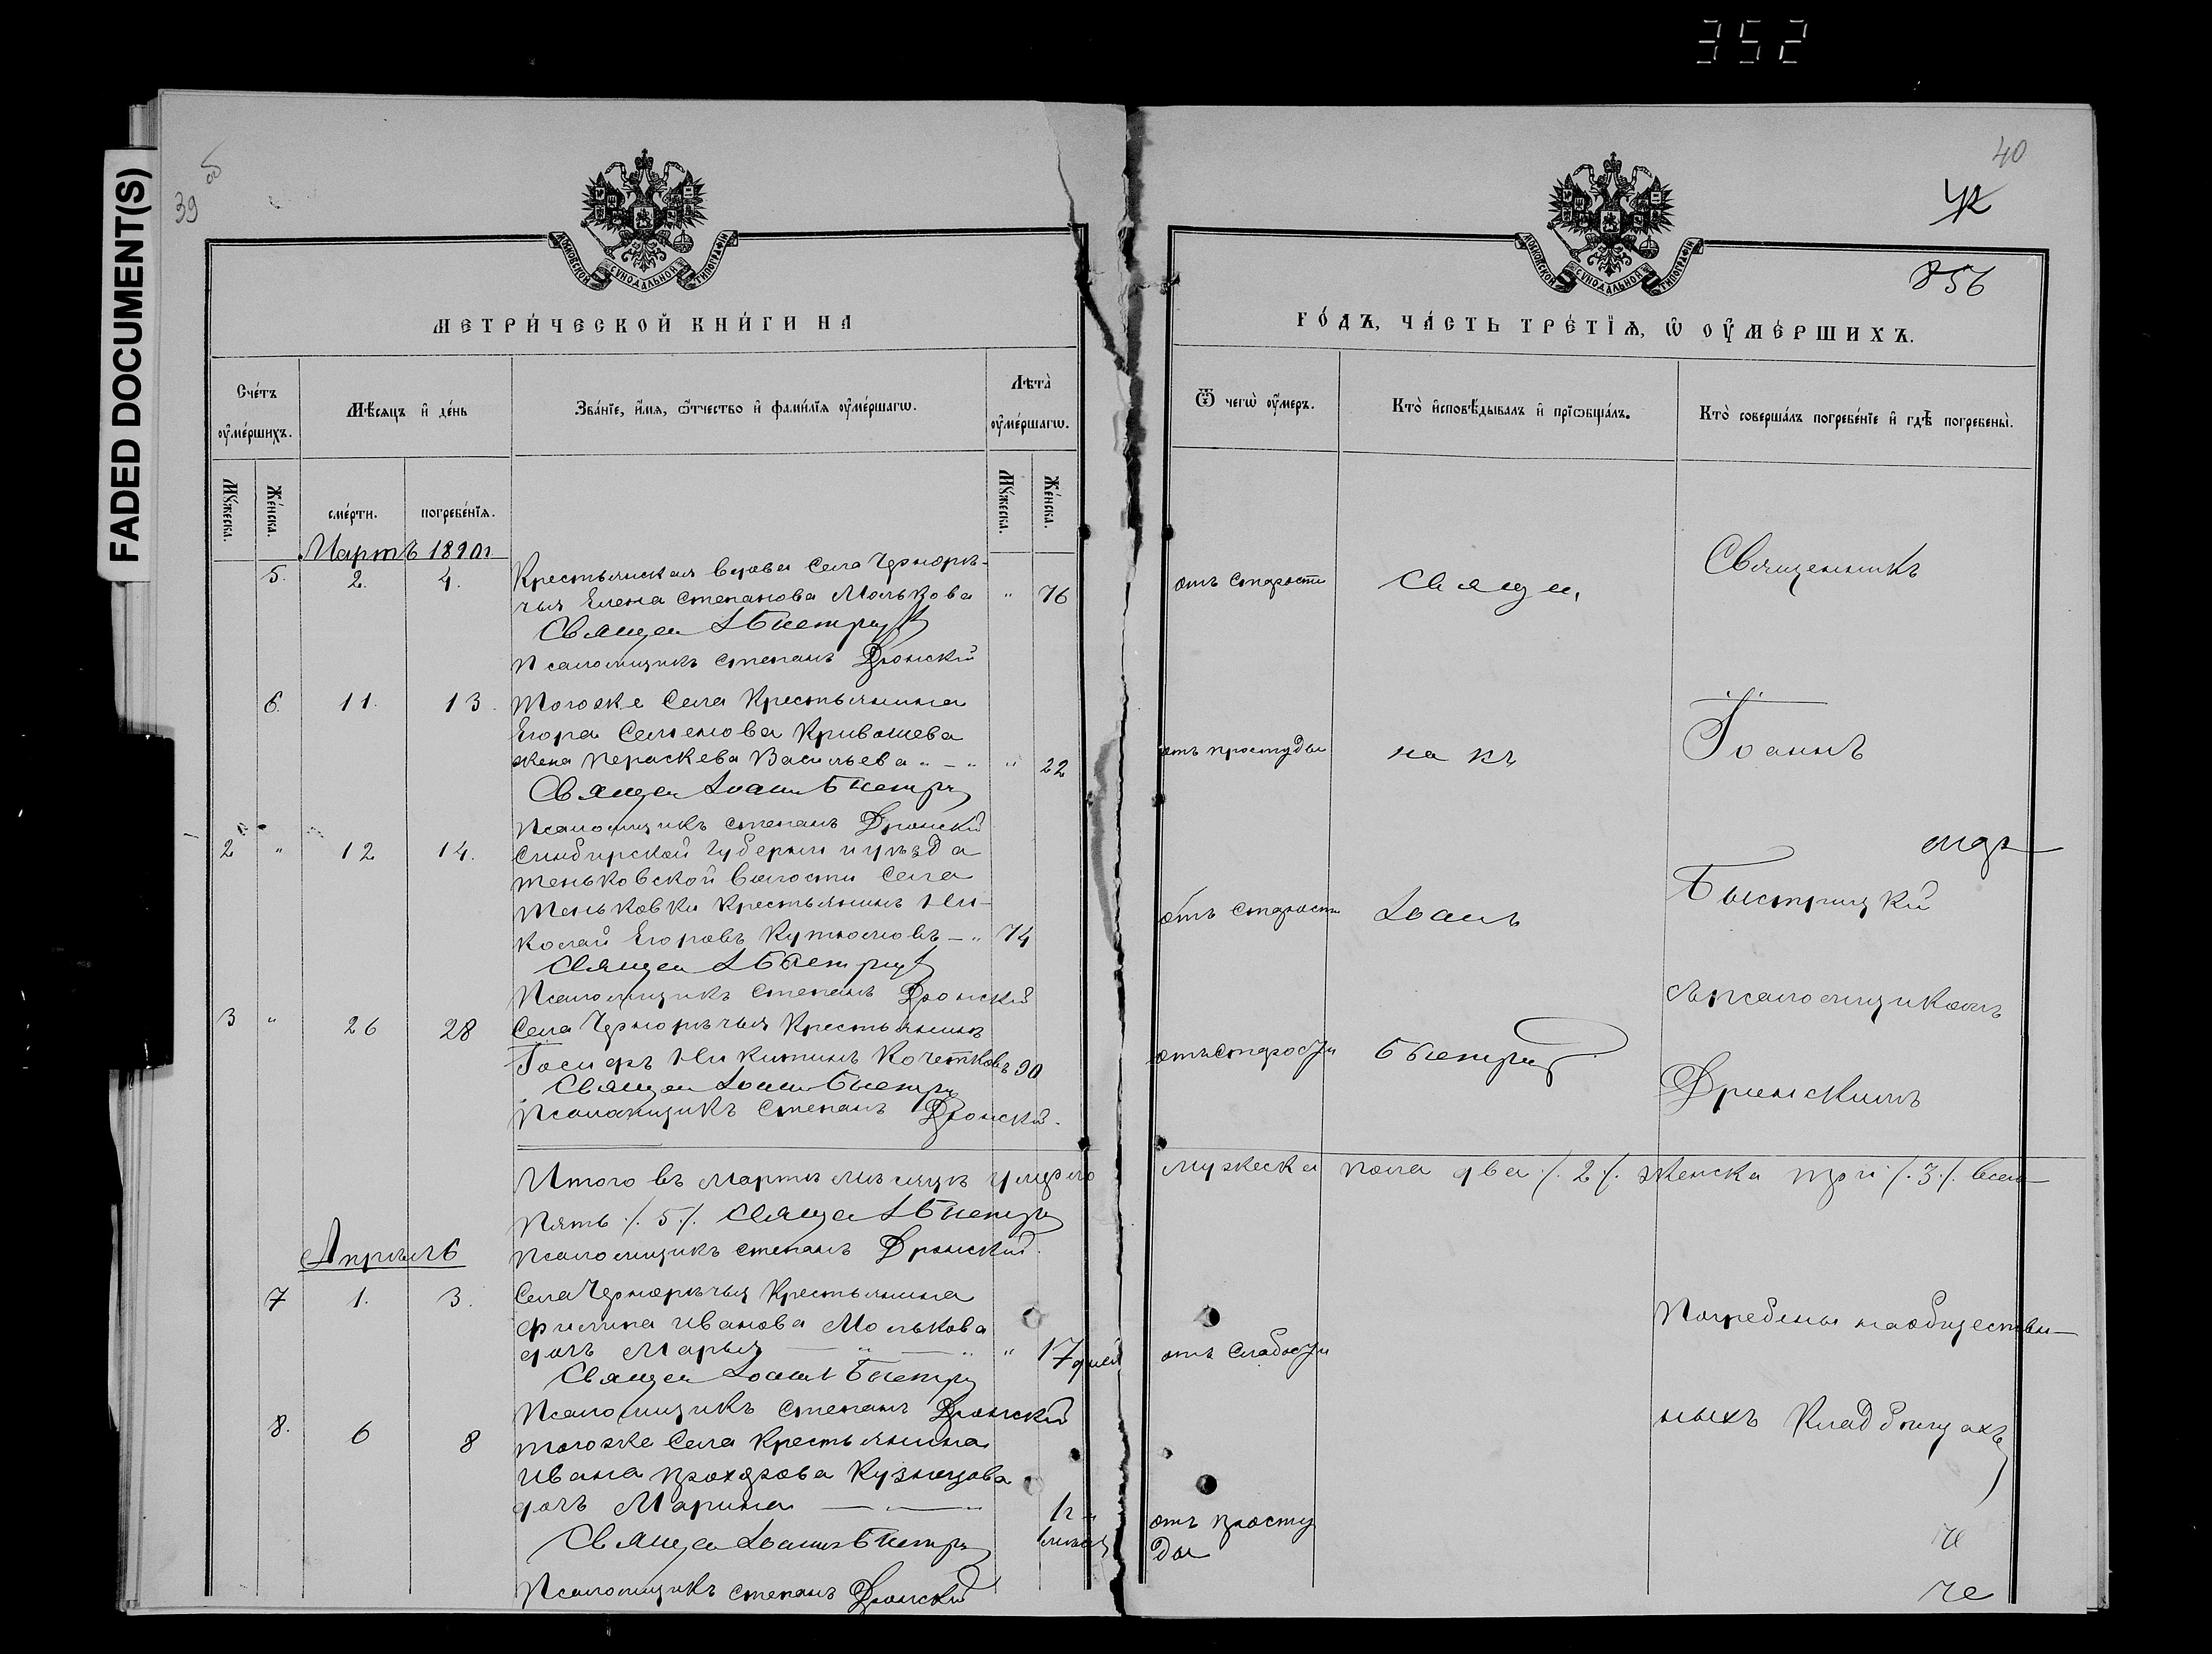 352
FADED DOCUMENT(S)
39 об
МОСКОВСКОЙ СУНОДАЛЬНОЙ ТИПОГРАФІИ
МЕТРИ́ЧЕСКОЙ КНИ́ГИ НА
Сче́тъ ᲂу҆ме́ршихъ.
Мѣ́сяцъ и҆ де́нь
Зва́нїе, и҆́мя, ѻ҆́тчество и҆ фами́лїя ᲂу҆ме́ршагѡ.
Лѣта̀ ᲂу҆ме́ршагѡ.
Мꙋ́жеска.
Же́нска.
сме́рти.
погребе́нїѧ.
Мꙋ́жеска.
Же́нска.
Мартъ 1890 г
5. 2. 4. Крестьянская вдова села Чернорѣ-
чья Елена Степанова Молькова " 76
Священ І Быстриц
Псаломщикъ Степанъ Дронскій
6. 11. 13. Тогоже села Крестьянина
Егора Семенова Кривошева
жена Параскева Васильева " — " " 22
Священ Іоанн Быстриц
Псаломщикъ Степанъ Дронскій
2 " 12 14. Симбирской Губерніи и уѣзда
Теньковской волости села
Теньковки крестьянинъ Ни-
колай Егоровъ — " 74
Священ І Быстриц
Псаломщикъ Степанъ Дронскій
3 " 26 28 Села Чернорѣчья Крестьянинъ
Іосифъ Никитинъ Кочетковъ 90
Священ Іоанн Быстриц
Псаломщикъ Степанъ Дронскій.
Итого въ Мартѣ мѣсяцѣ умерло
Пять ./. 5 ./. Священ І Быстриц
Апрѣль
Псаломщикъ Степанъ Дронскій.
7 1. 3. Села Чернорѣчья Крестьянина
Филипа Иванова Молькова
дочь Марья — " — " " 17 дней
Священ Іоанн Быстриц
Псаломщикъ Степанъ Дронскій
8. 6 8 Тогоже села Крестьянина
Ивана Прохорова Кузнецова
дочь Марина — — " 1 г "
Священ Іоаннъ Быстриц 1 мѣсяц
Псаломщикъ Степанъ Дронскій
40
856
МОСКОВСКОЙ СУНОДАЛЬНОЙ ТИПОГРАФІИ
ГО́ДЪ, ЧА́СТЬ ТРЕ́ТЇѦ, Ѡ҆ ОУ҆МЕ́РШИХЪ.
Ѿ чегѡ̀ ᲂу҆́меръ.
Кто̀ и҆сповѣ́дывалъ и҆ прїѡбща́лъ.
Кто̀ соверша́лъ погребе́нїе и҆ гдѣ̀ погребены̀.
отъ старости
Свящ
Священникъ
отъ простуды
Іоаннъ
отъ старости
Іоанъ
Быстрицкій
съ псаломщикомъ
отъ старости
Быстриц
Дронскимъ
мужеска пола два ./. 2 ./. женска три ./. 3 ./. всего
отъ слабости
Погребены на обществен-
ныхъ Кладбищахъ
отъ просту
ды